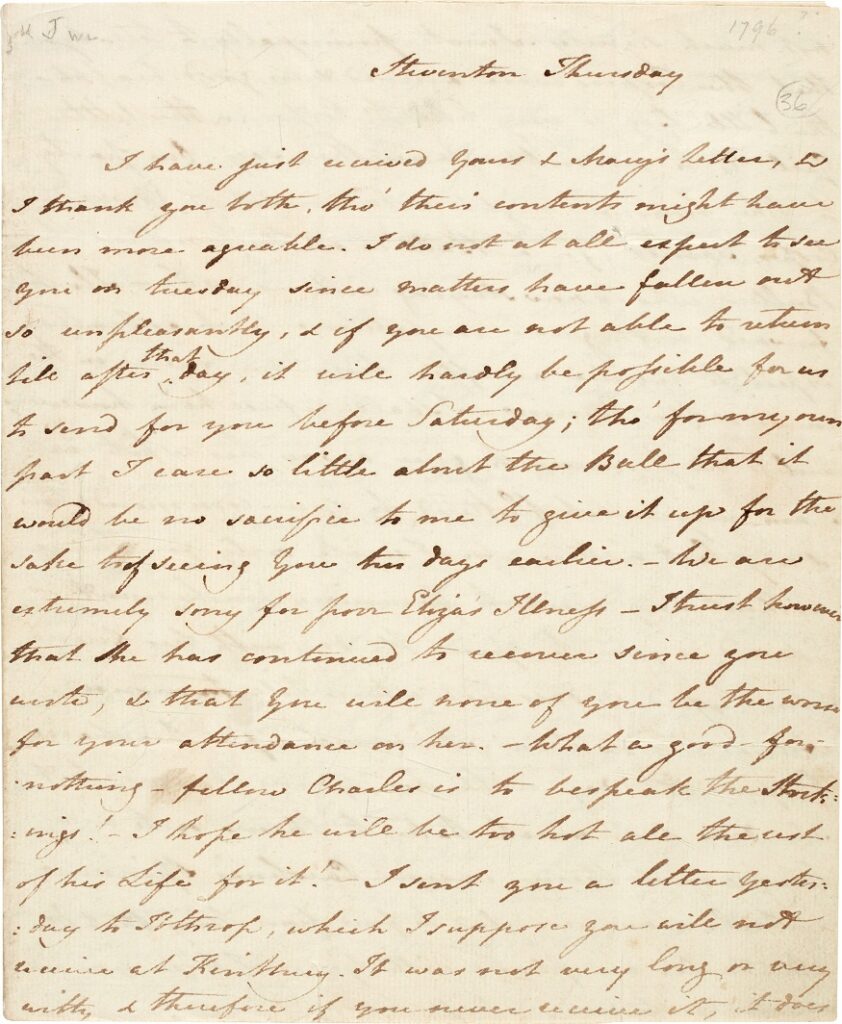 J W
1796?
Steventon Thursday
36
I have just received Yours & Mary's Letter, &
I thank you both, tho' their contents might have
been more agreable. I do not at all expect to see
you on tuesday since matters have fallen out
so unpleasantly, & if you are not able to return
till after that day, it will hardly be possible for us
to send for you before Saturday; tho' for my own
part I care so little about the Ball that it
would be no sacrifice to me to give it up for the
sake of seeing You two days earlier. - We are
extremely sorry for poor Eliza's Illness - I trust however
that she has continued to recover since you
wrote, & that You will none of you be the worse
for your attendance on her. - What a good-for-
-nothing-fellow Charles is to bespeak the Stock:
:ings! - I hope he will be too hot all the rest
of his Life for it! - I sent you a letter Yester:
:day to Ibthrop, which I suppose you will not
receive at Kintbury. It was not very long or very
witty, & therefore if you never receive it, it does